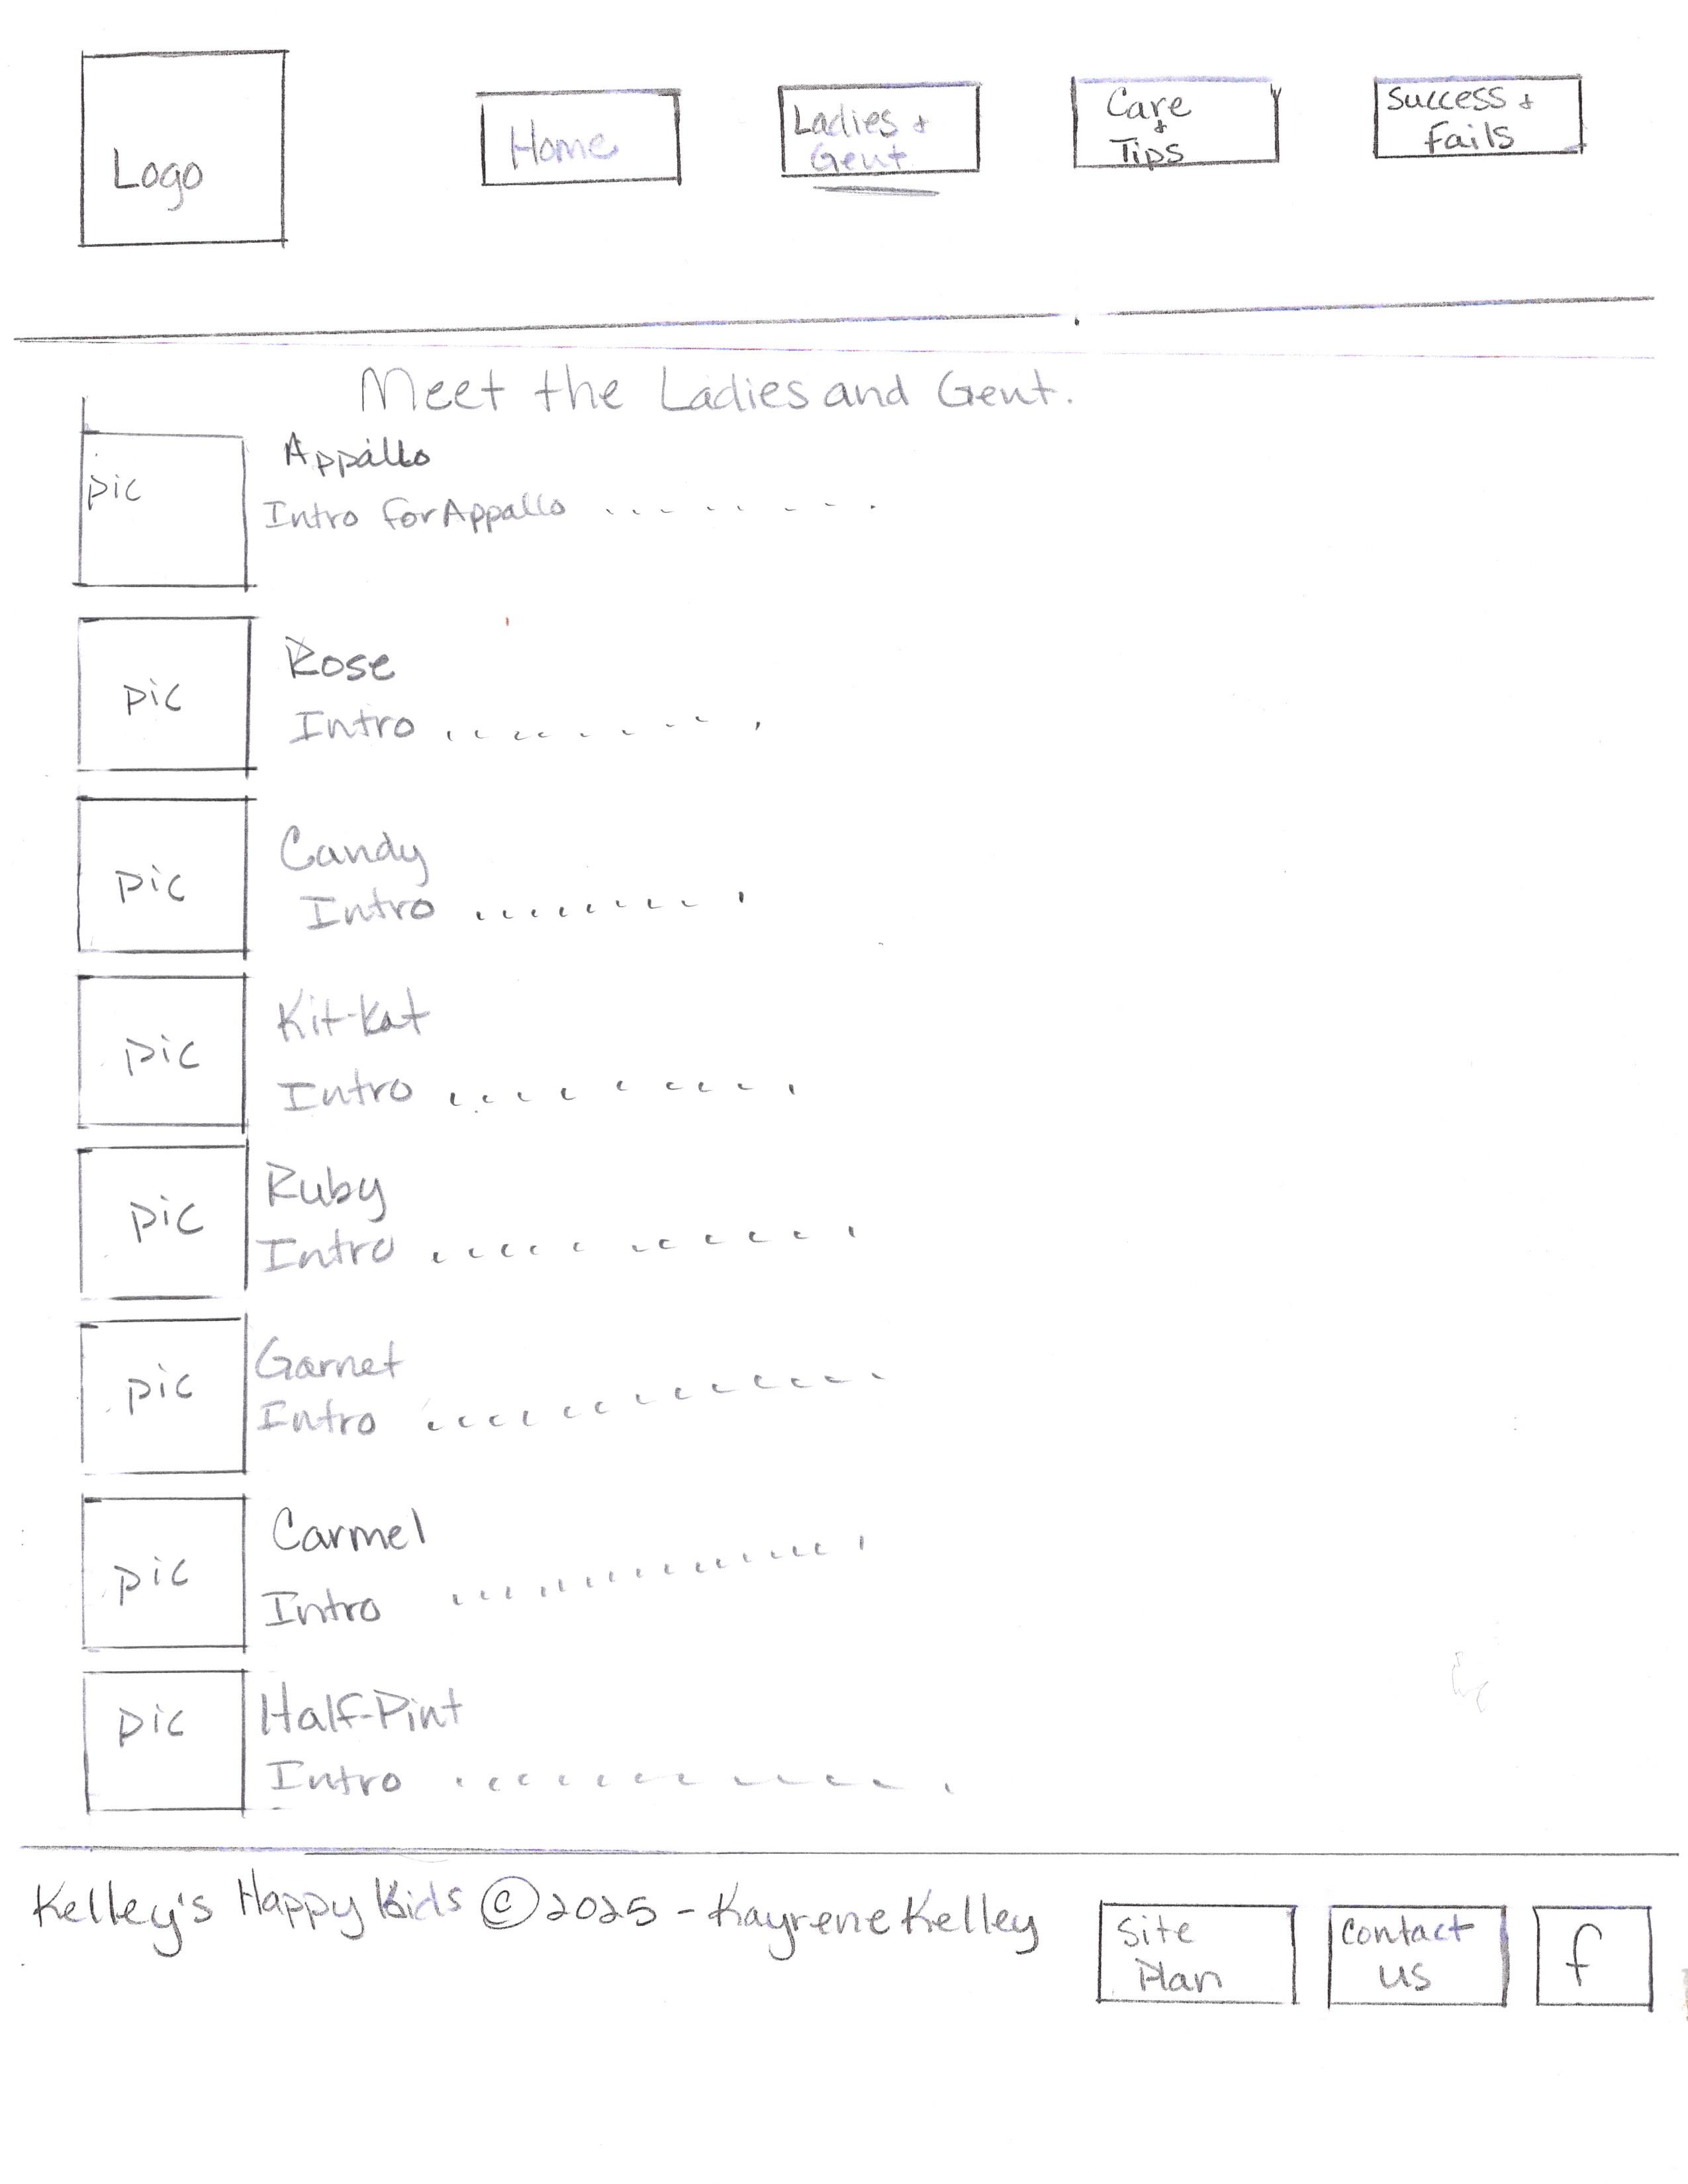 Logo
Home
Ladies +
Gent
Care
+
Tips
Success +
Fails
Meet the Ladies and Gent.
pic
Appallo
Intro for Appallo . . . . . . . . .
pic
Rose
Intro . . . . . . . . . .
pic
Candy
Intro . . . . . . . . . .
pic
Kit-Kat
Intro . . . . . . . . .
pic
Ruby
Intro . . . . . . . . . . .
pic
Garnet
Intro . . . . . . . . . . . . .
pic
Carmel
Intro . . . . . . . . . . . . . . .
pic
Half-Pint
Intro . . . . . . . . . . .
Kelley's Happy Kids © 2025 - Kayrene Kelley
Site
Plan
Contact
us
f